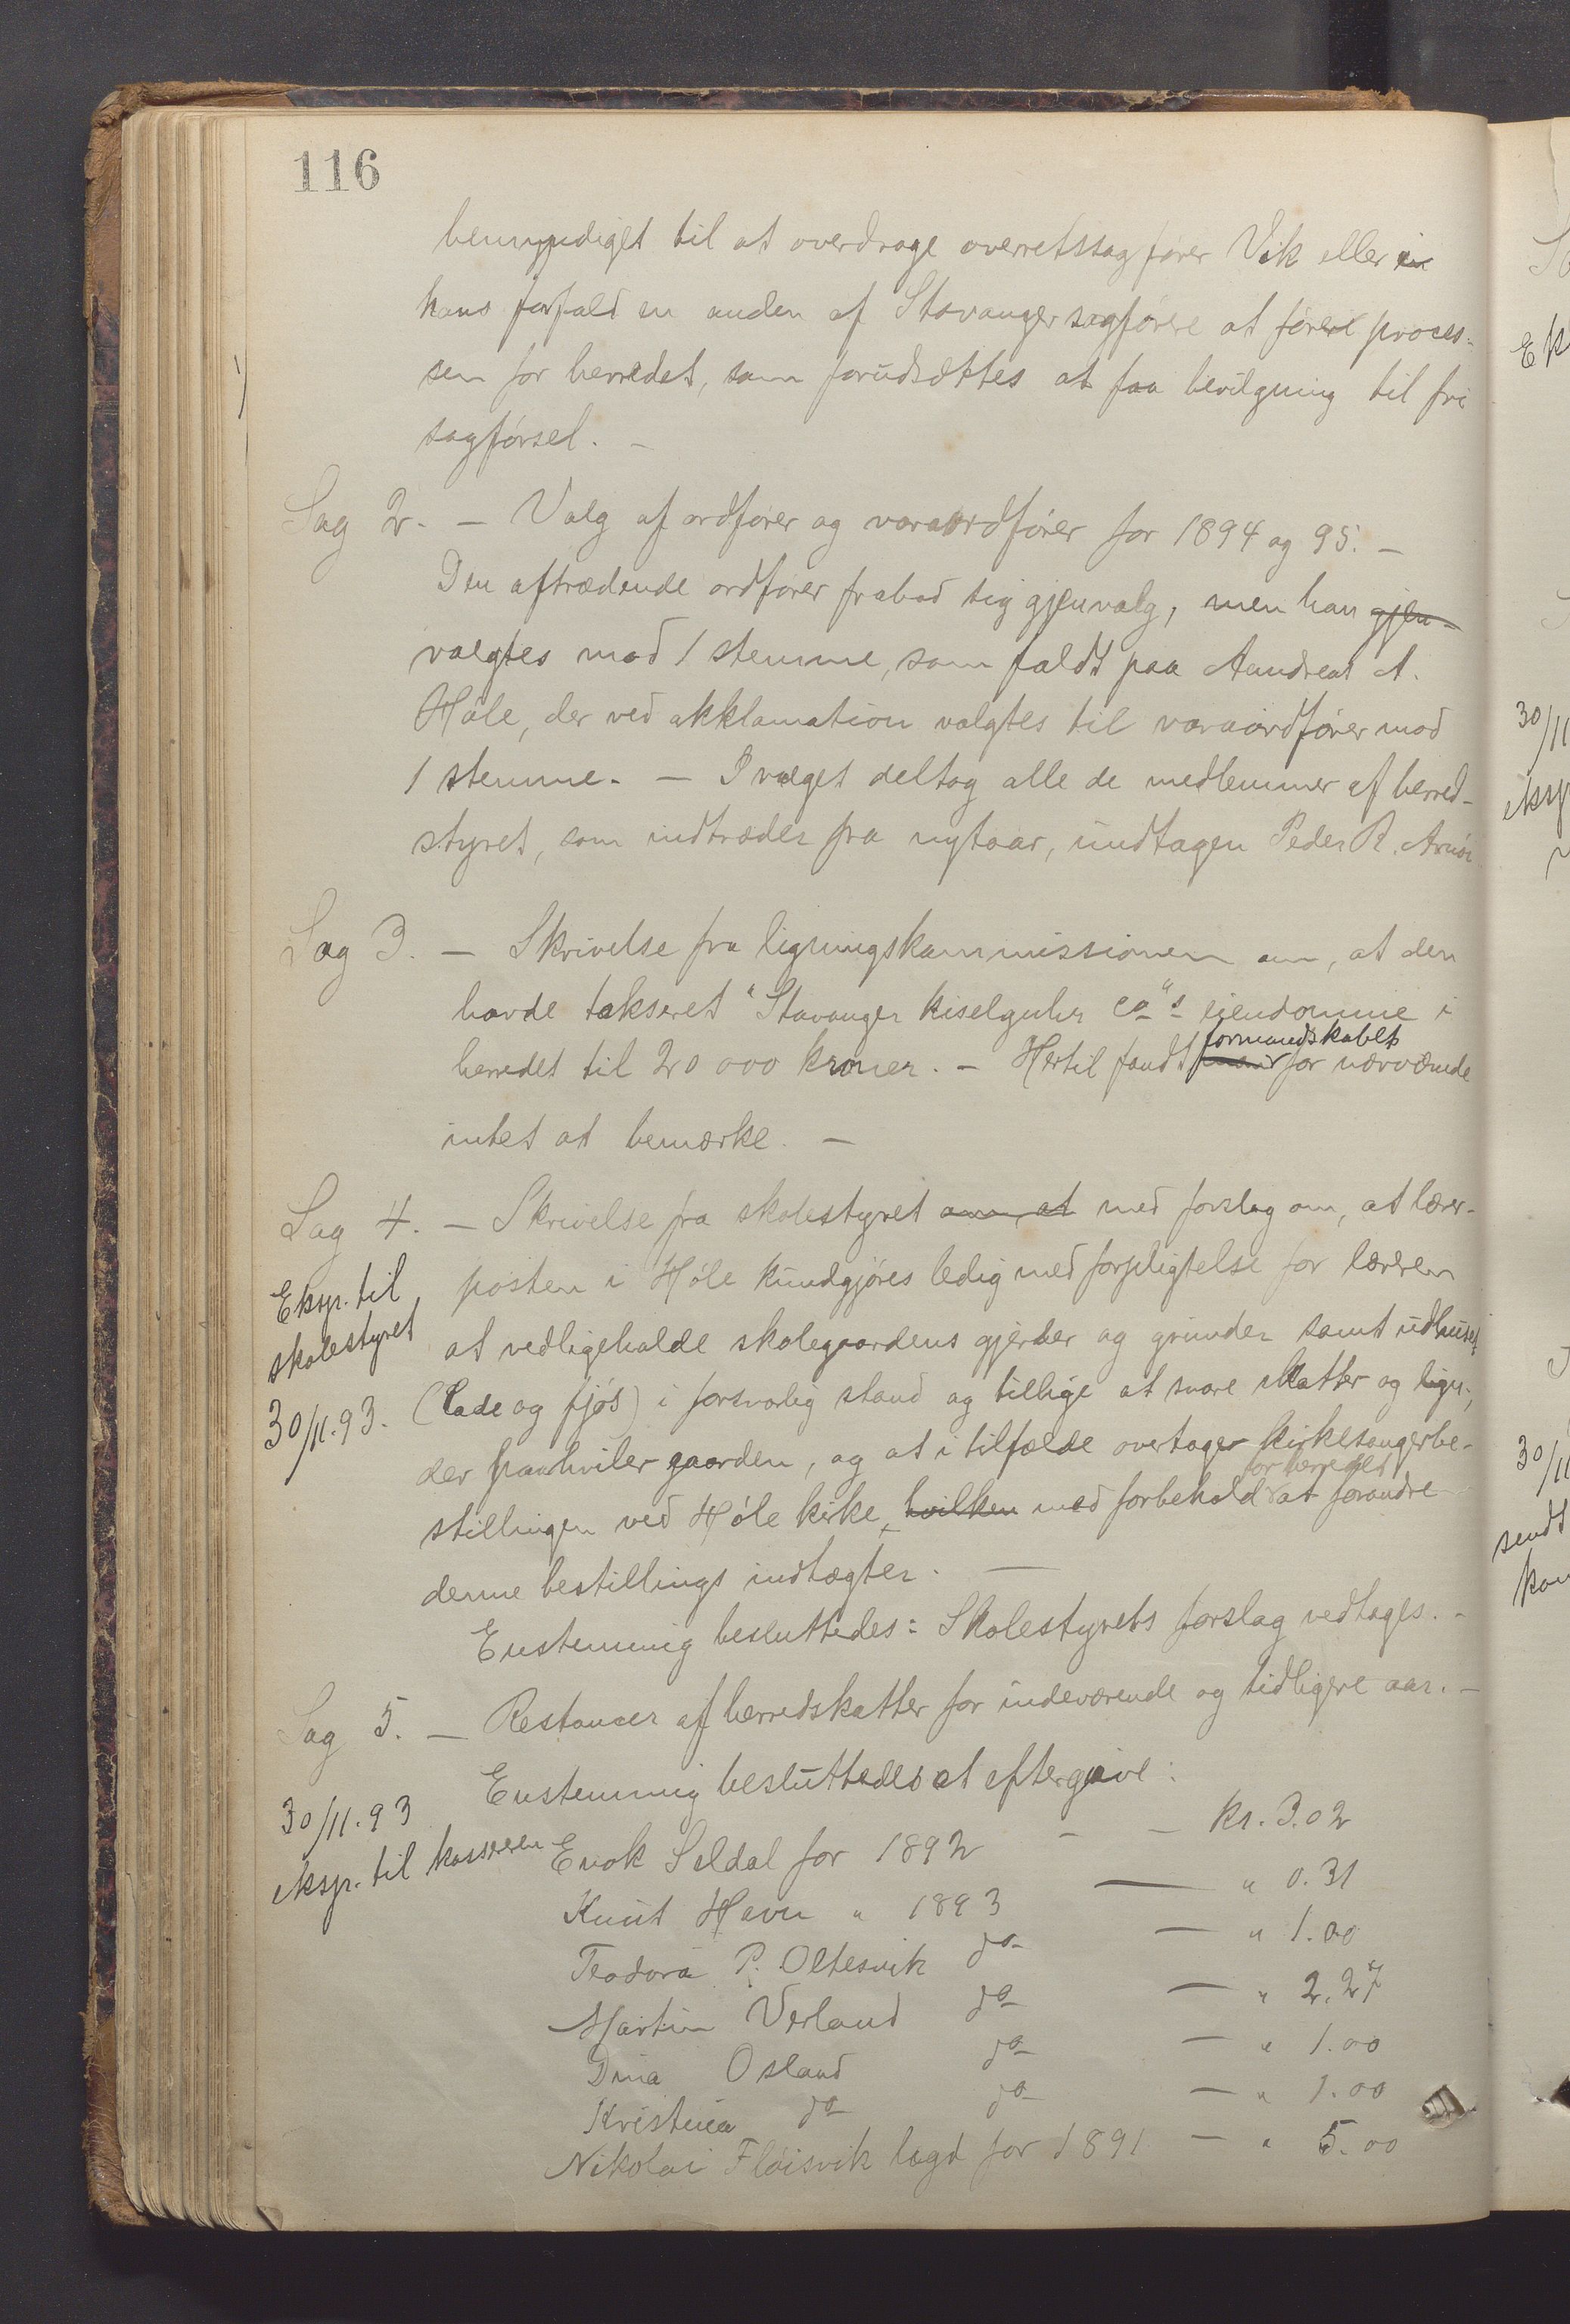 116
bemyndiget til at overdrage overretssagfører Vik eller i
hans forfald en anden af Stavanger sagførere at føre proces-
sen for herredet, som forudsættes at faa bevilgning til fri
sagførsel. –
Sag 2. – Valg af ordfører og varaordfører for 1894 og 95. –
Den aftrædende ordfører frabad sig gjenvalg, men han gjen-
valgtes mod 1 stemme, som faldt paa Aandreas A.
Høle, der ved akklamation valgtes til varaordfører mod
1 stemme. – I valget deltog alle de medlemmer af herred-
styret, som indtræder fra nytaar, undtagen Peder R. Arnøi
Sag 3. – Skrivelse fra ligningskommissionen om, at den
havde takseret "Stavanger kiselguhr co"s eiendomme i
herredet til 20 000 kroner. – Hertil fandt formandskabet for nærværende
intet at bemærke. –
Sag 4. – Skrivelse fra skolestyret om, at med forslag om, at lærer-
posten i Høle kundgjøres ledig med forpligtelse for læreren
at vedligeholde skolegaardens gjerder og grinder samt udhuset
(lade og fjøs) i forsvarlig stand og tillige at svare skatter og lign.,
der paahviler gaarden, og at i tilfælde overtage kirkesangerbe-
stillingen ved Høle kirke, hvilken med forbehold for herredet at forandre
denne bestillings indtægter. –
Enstemmig besluttedes: Skolestyrets forslag vedtages. –
Eksp. til
skolestyret
30/11.93.
Sag 5. – Restancer af herredskatter for indeværende og tidligere aar. –
Enstemmig besluttedes at eftergive:
30/11.93
eksp. til kassereren
Enok Seldal for 1892 – – kr. 3.02
Knut Havn " 1893 – " 0.31
Teodora P. Oltesvik do – " 1.00
Martin Verland do – " 2.27
Dina Osland do – " 1.00
Kristina do do – " 1.00
Nikolai Fløisvik lagd for 1891 – " 5.00